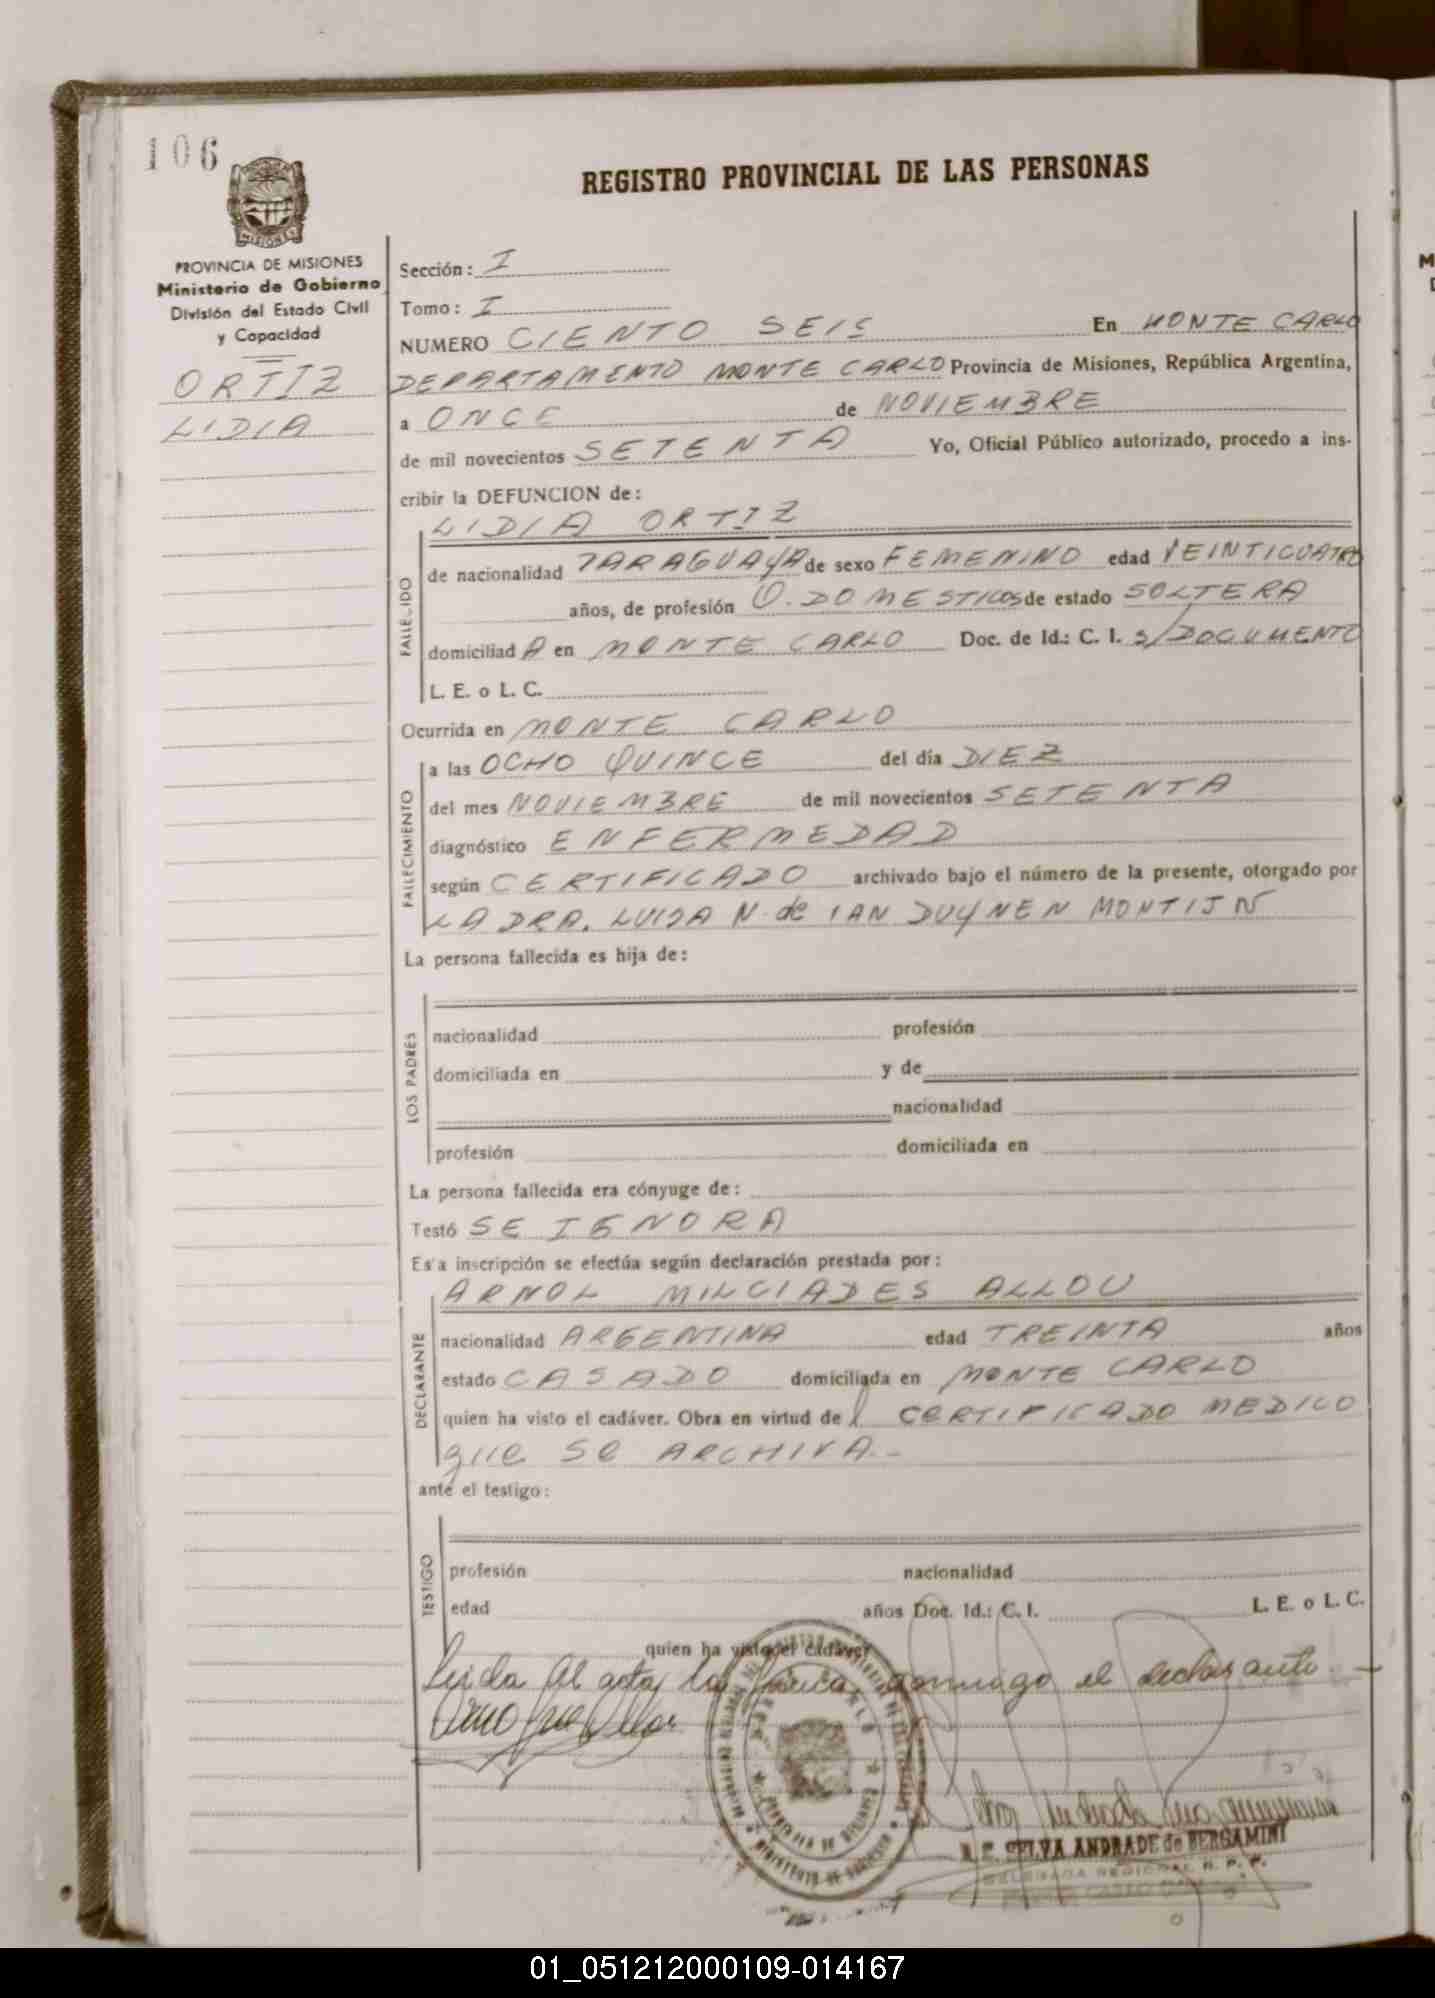 106
REGISTRO PROVINCIAL DE LAS PERSONAS
MISIONES
PROVINCIA DE MISIONES
Ministerio de Gobierno
División del Estado Civil
y Capacidad
ORTIZ
LIDIA
Sección: I
Tomo: I
NUMERO CIENTO SEIS En MONTE CARLO
DEPARTAMENTO MONTE CARLO Provincia de Misiones, República Argentina,
a ONCE de NOVIEMBRE
de mil novecientos SETENTA Yo, Oficial Público autorizado, procedo a ins-
cribir la DEFUNCION de:
LIDIA ORTIZ
FALLECIDO
de nacionalidad PARAGUAYA de sexo FEMENINO edad VEINTICUATRO
años, de profesión Q. DOMESTICOS de estado SOLTERA
domiciliad A en MONTE CARLO Doc. de Id.: C. I. S/DOCUMENTO
L. E. o L. C.
Ocurrida en MONTE CARLO
FALLECIMIENTO
a las OCHO QUINCE del día DIEZ
del mes NOVIEMBRE de mil novecientos SETENTA
diagnóstico ENFERMEDAD
según CERTIFICADO archivado bajo el número de la presente, otorgado por
LA DRA. LUISA N. de DUYNEN
La persona fallecida es hija de:
LOS PADRES
nacionalidad profesión
domiciliada en y de
nacionalidad
profesión domiciliada en
La persona fallecida era cónyuge de:
Testó SE IGNORA
Es'a inscripción se efectúa según declaración prestada por:
ARNOL MILCIADES ALLOU
DECLARANTE
nacionalidad ARGENTINA edad TREINTA años
estado CASADO domiciliada en MONTE CARLO
quien ha visto el cadáver. Obra en virtud de l CERTIFICADO MEDICO
que se ARCHIVA.-
ante el testigo:
TESTIGO
profesión nacionalidad
edad años Doc. Id.: C. I. L. E. o L. C.
quien ha visto el cadáver
Leida el acta, la firma conmigo el declarante -
SELVA ANDRADE de BERGAMINI
DELEGADA REGIONAL R. P. P.
01_051212000109-014167